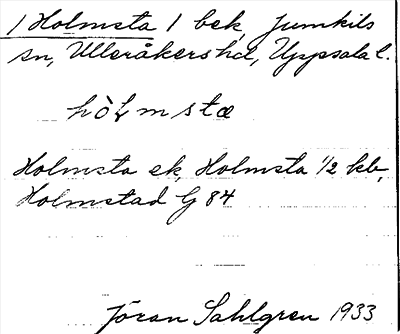 / Holmsta / bek, Jumkils
sn, Ulleråkers hd, Uppsala l.
hòłmsta
Holmsta ek, Holmsta 1/2 kb,
Holmstad G 84
Jöran Sahlgren 1933